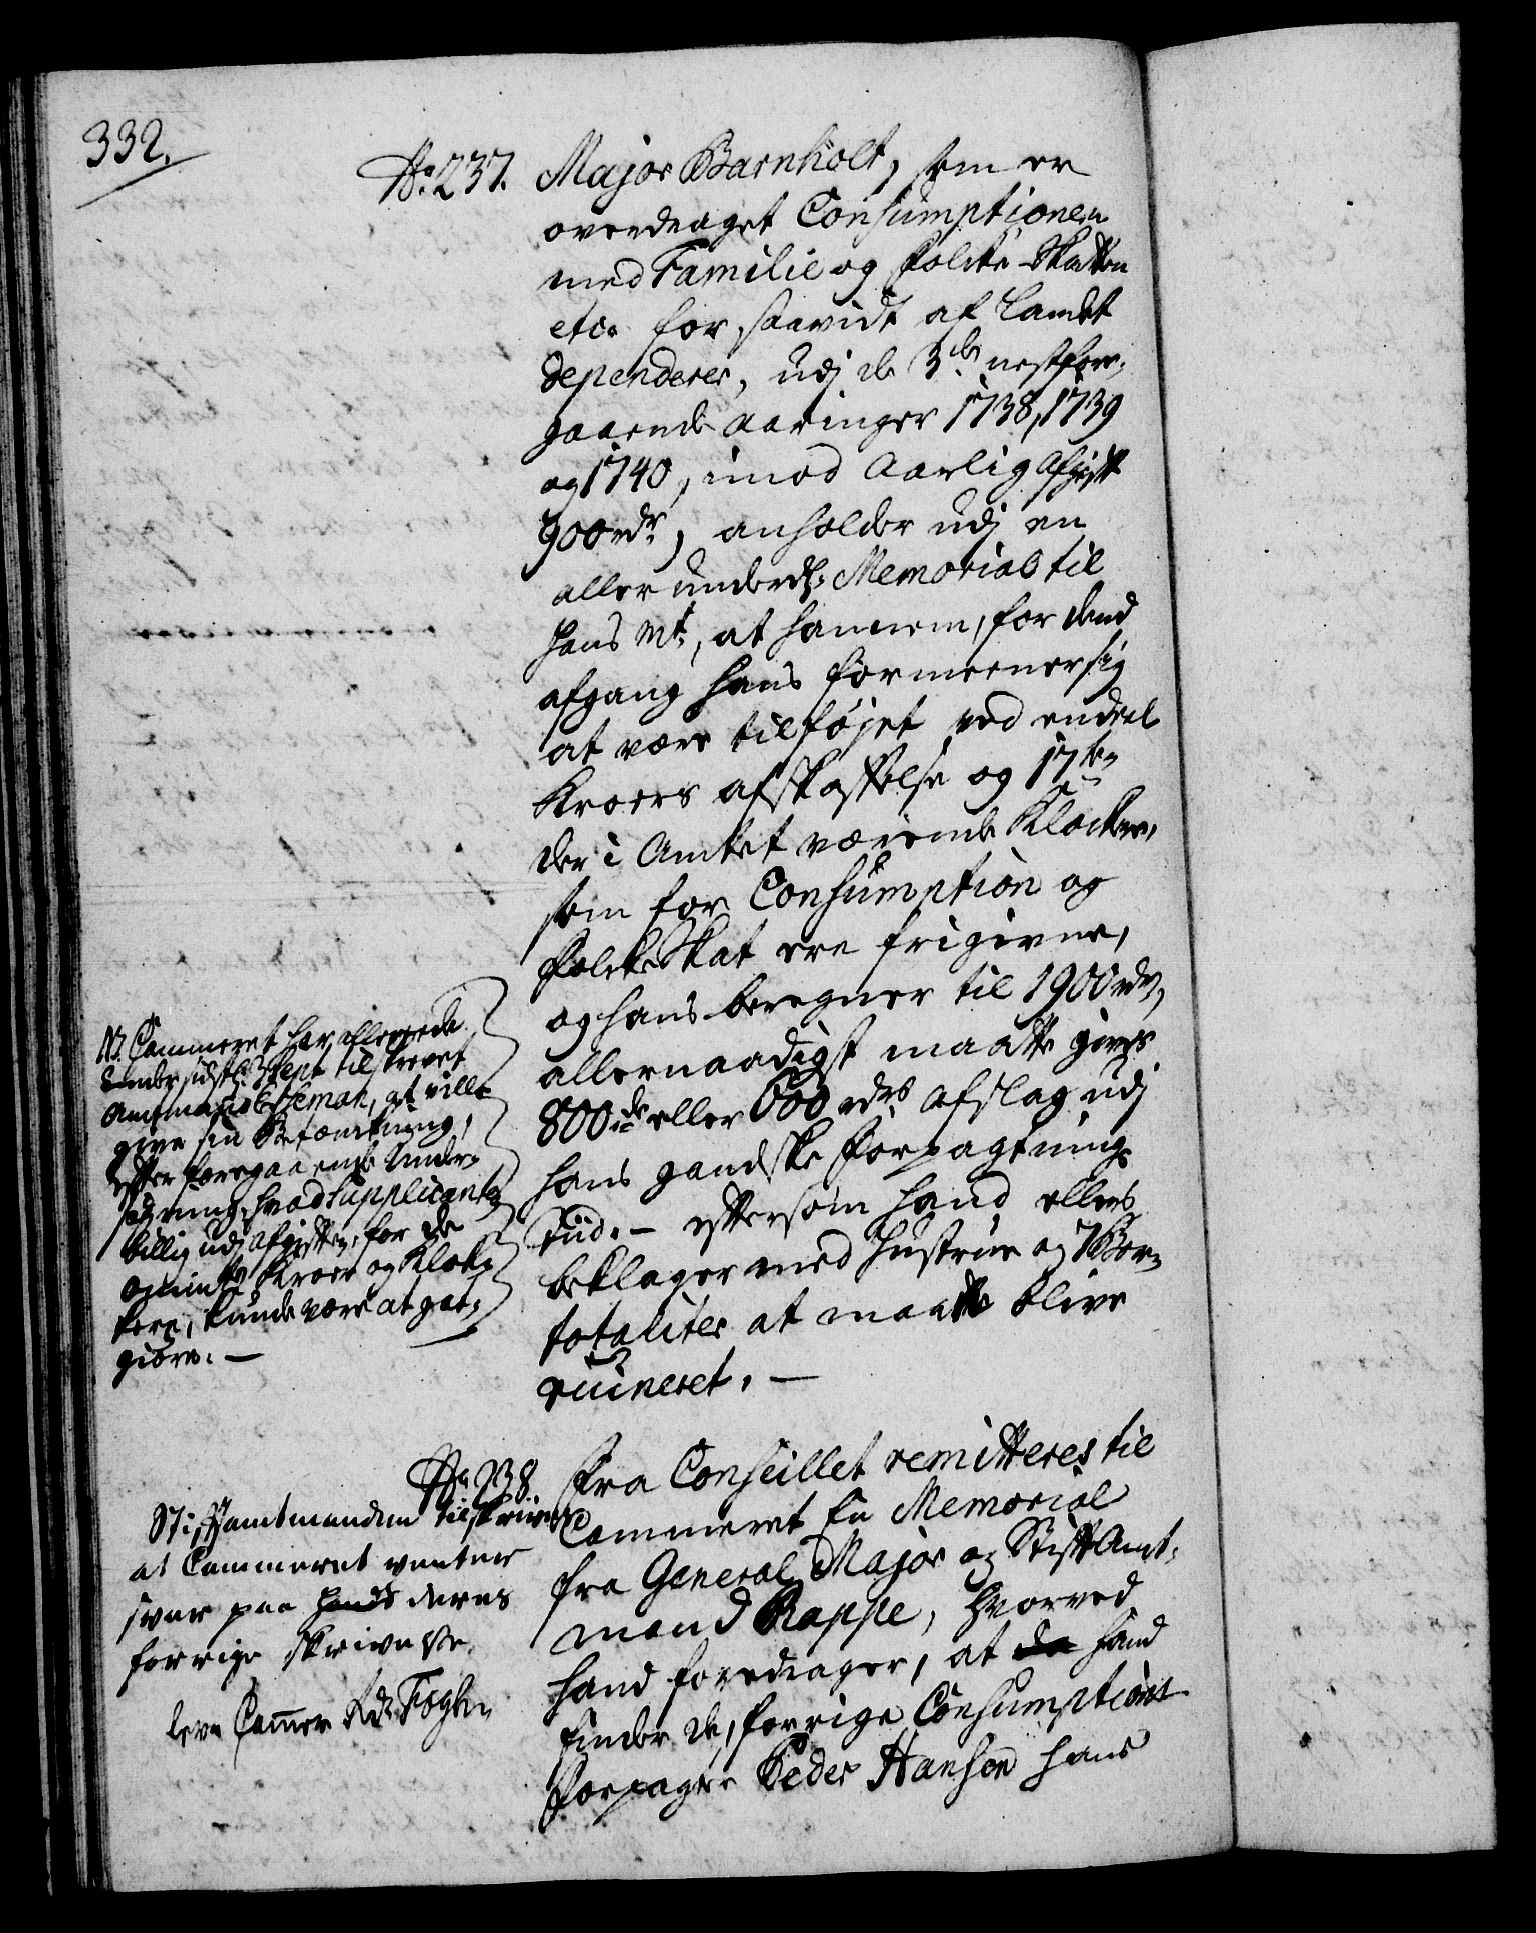 332.
No. 237.
Major Barnholt, som er
overdraget Consumptionen
med Familie og Folke-Skatten
etc. for saavidt af Landet
dependerer, udj de 3de nestfore-
gaaende aaringer 1738, 1739
og 1740, imod Aarlig Afgift
900 rdr, anholder udj en
allerunderd: Memorial til
Hans Mt, at hannem, for dend
afgang hans formeener sig
at være tilføjet ved endeel
Kroers afskaffelse og 17ten
der i Amtet værende Klockere,
som for Consumption og
FolkeSkat ere frigivne,
og hans beregner til 1900 rdr,
allernaadigst maatte gives
800de eller 600 rdrs Afslag udj
hans gandske Forpagtnings
Tiid. - eftersom hand ellers
beklager med Hustrue og 7 Børn
totaliter at maatte blive
ruineret. -
NB. Cammeret har allerede
under sidstl: 3 Sept tilskrevet
Amtmand, at ville
give sin Betænkning,
efter foregaaende Under-
søgning, hvad Supplicanten
billig udj Afgiften, for de
ommelte Kroer og Klok-
kere, kunde være at god-
giøre. -
No. 238.
Fra Conseillet remitteres til
Cammeret En Memorial
fra General Major og StiftAmt-
mand Rappe, hvorved
hand foredrager, at da hand
finder de, forrige Consumptions
Forpagter Peder Hansen hans
Stiftamtmanden tilskrives
at Cammeret venter
svar paa hands deres
forrige skrivelse.
leve Cammer Rd Fogh